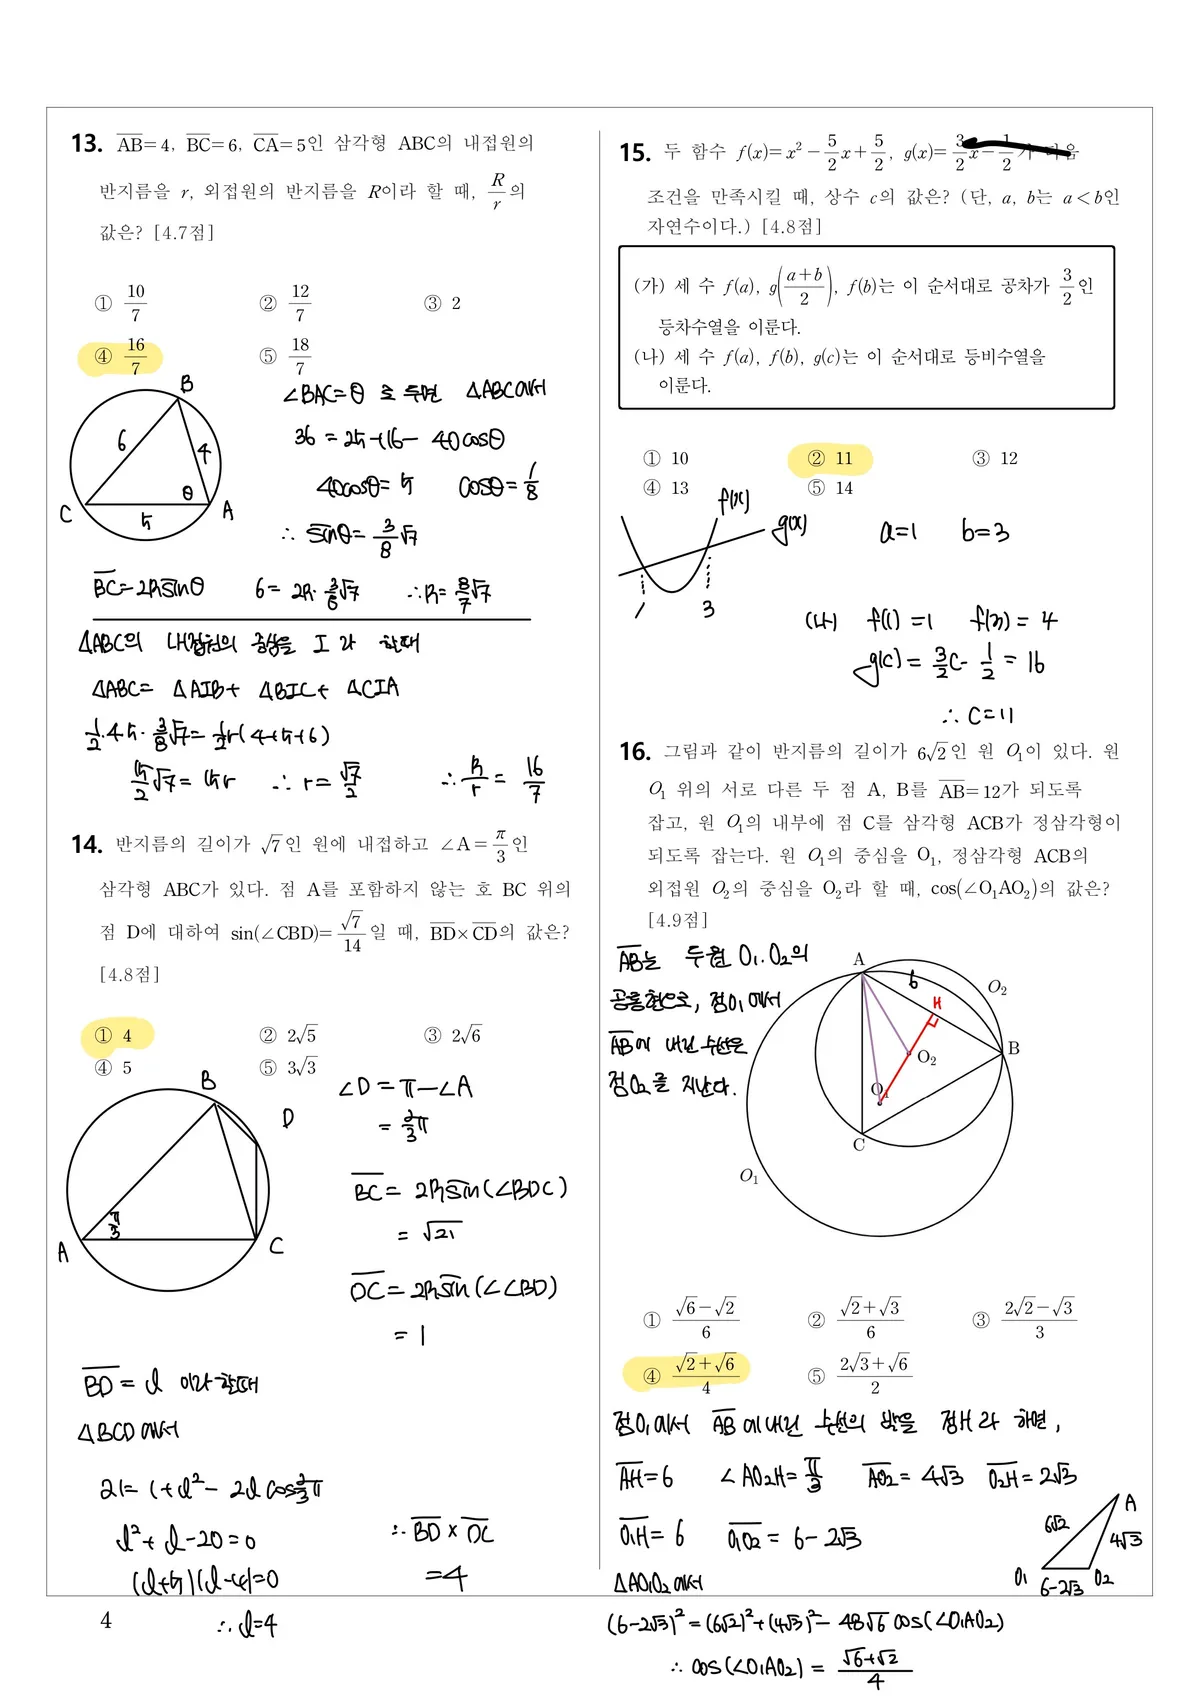 13. AB=4, BC=6, CA=5인 삼각형 ABC의 내접원의
반지름을 r, 외접원의 반지름을 R이라 할 때, R/r의
값은? [4.7점]
① 10/7 ② 12/7 ③ 2
④ 16/7 ⑤ 18/7
B
6
4
θ
C
5
A
∠BAC=θ 로 두면 △ABC에서
36 = 25+16- 40cosθ
40cosθ= 5 cosθ= 1/8
∴ sinθ= 3/8 √7
BC=2Rsinθ 6= 2R· 3/8 √7 ∴R= 8/7 √7
△ABC의 내접원의 중심을 I 라 할때
△ABC= △AIB+ △BIC+ △CIA
1/2·4·5· 3/8 √7= 1/2 r(4+5+6)
15/2 √7= 15r ∴ r= √7/2 ∴ R/r = 16/7
14. 반지름의 길이가 √7인 원에 내접하고 ∠A= π/3인
삼각형 ABC가 있다. 점 A를 포함하지 않는 호 BC 위의
점 D에 대하여 sin(∠CBD)= √7/14 일 때, BD×CD의 값은?
[4.8점]
① 4 ② 2√5 ③ 2√6
④ 5 ⑤ 3√3
B
D
π/3
A
C
∠D = π-∠A
= 2/3 π
BC = 2Rsin(∠BDC)
= √21
DC = 2Rsin(∠CBD)
= 1
BD = d 이라 할때
△BCD에서
21= 1+d² - 2d cos 2/3 π
d²+ d-20=0
(d+5)(d-4)=0
∴ d=4
∴ BD × DC
=4
4
15. 두 함수 f(x)=x²- 5/2 x+ 5/2, g(x)= 3/2 x- 1/2 가 다음
조건을 만족시킬 때, 상수 c의 값은? (단, a, b는 a<b인
자연수이다.) [4.8점]
(가) 세 수 f(a), g((a+b)/2), f(b)는 이 순서대로 공차가 3/2인
등차수열을 이룬다.
(나) 세 수 f(a), f(b), g(c)는 이 순서대로 등비수열을
이룬다.
① 10 ② 11 ③ 12
④ 13 ⑤ 14
f(x)
g(x)
1
3
a=1 b=3
(나) f(1) =1 f(3) = 4
g(c) = 3/2 c- 1/2 = 16
∴ c=11
16. 그림과 같이 반지름의 길이가 6√2인 원 O₁이 있다. 원
O₁ 위의 서로 다른 두 점 A, B를 AB=12가 되도록
잡고, 원 O₁의 내부에 점 C를 삼각형 ACB가 정삼각형이
되도록 잡는다. 원 O₁의 중심을 O₁, 정삼각형 ACB의
외접원 O₂의 중심을 O₂라 할 때, cos(∠O₁AO₂)의 값은?
[4.9점]
AB는 두원 O₁, O₂의
공통현으로, 점O₁에서
AB에 내린 수선은
점O₂를 지난다.
A
6
H
O₂
B
O₂
O₁
C
O₁
① (√6-√2)/6 ② (√2+√3)/6 ③ (2√2-√3)/3
④ (√2+√6)/4 ⑤ (2√3+√6)/2
점O₁에서 AB에 내린 수선의 발을 점H라 하면,
AH=6 ∠AO₂H= π/3 AO₂= 4√3 O₂H= 2√3
O₁H= 6 O₁O₂ = 6-2√3
△AO₁O₂에서
A
6√2
4√3
O₁ 6-2√3 O₂
(6-2√3)² = (6√2)²+(4√3)²- 48√6 cos(∠O₁AO₂)
∴ cos(∠O₁AO₂) = (√6+√2)/4